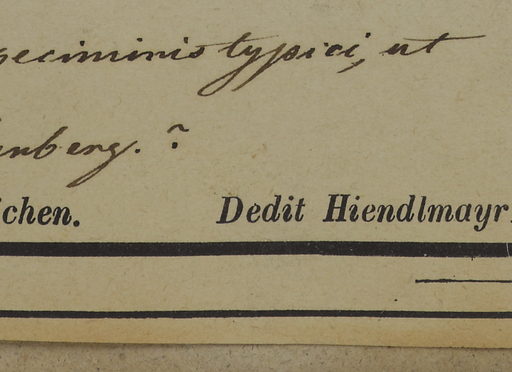 peciminis typici, ut
enberg. ?
ichen. Dedit Hiendlmayr.